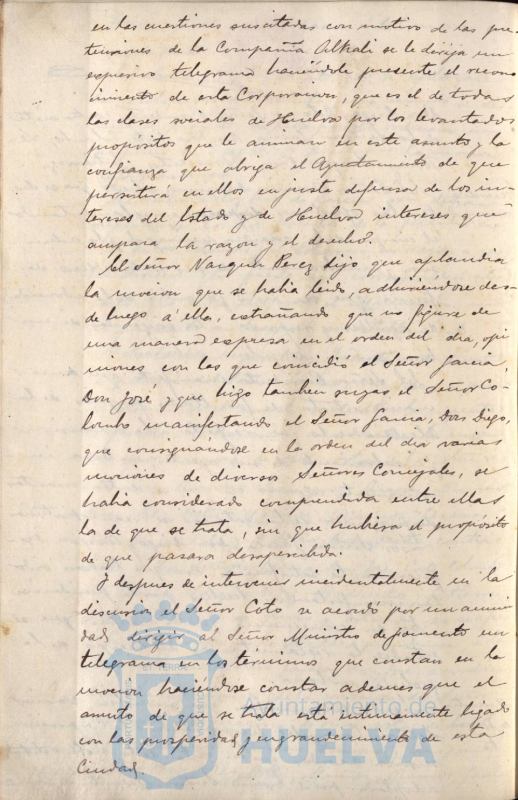 en las cuestiones suscitadas con motivo de las pre-
tensiones de la Compañía Alkali se le dirija un
expresivo telegrama haciéndole presente el recono-
cimiento de esta Corporacion, que es el de todas
las clases sociales de Huelva por los levantados
propósitos que le animan en este asunto y la
confianza que abriga el Ayuntamiento de que
persistirá en ellos en justa defensa de los in-
tereses del Estado y de Huelva intereses que
ampara la razon y el derecho.
El Señor Vazquez Perez dijo que aplaudia
la mocion que se habia leido, adhiriéndose des-
de luego á ella, extrañando que no figure de
una manera expresa en el orden del dia, opi
niones con las que coincidió el Señor Garcia,
Don José y que hizo tambien suyas el Señor Co-
lombo manifestando el Señor Garcia, Don Diego,
que consignándose en la orden del dia varias
mociones de diversos Señores Concejales, se
habia considerado comprendida entre ellas
la de que se trata, sin que hubiera el propósito
de que pasara desapercibida.
Y despues de intervenir incidentalmente en la
discusion el Señor Coto se acordó por unanimi
dad dirigir al Señor Ministro de fomento un
telegrama en los términos que constan en la
mocion haciéndose constar ademas que el
asunto de que se trata está intimamente ligado
con la prosperidad y engrandecimiento de esta
Ciudad.
Ayuntamiento de
HUELVA